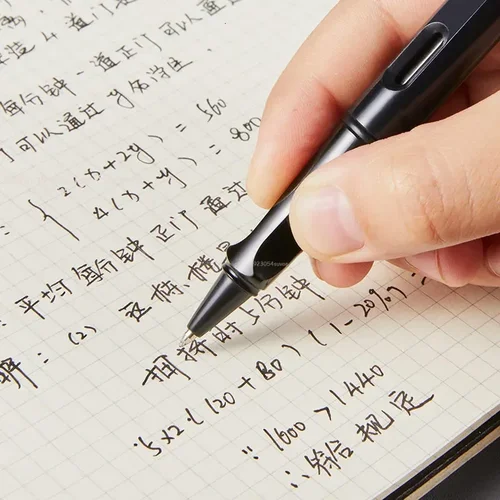 造 4 道门
每分钟一道正门可以通过
门可以通过 y 名学生
2(x+2y) = 560
4(x+y) = 800
: 平均每分钟正门通过
解: (2) 这栋楼
拥挤时 5 分钟
5×2·(120+80)(1-20%) =
∵ 1600 > 1440
∴ 符合规定